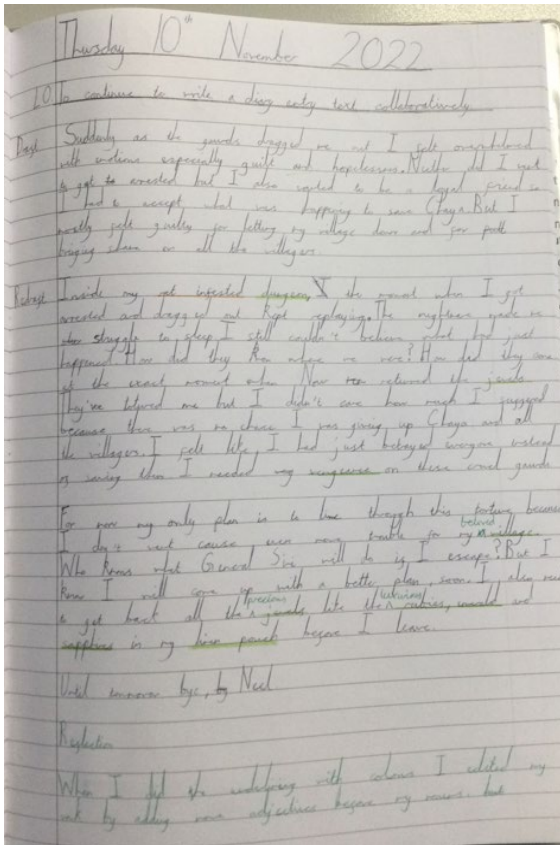 Thursday 10th November 2022
LO To continue to write a diary entry text collaboratively
Past Suddenly as the guards dragged me out I felt overwhelmed
with emotions especially guilt and hopelessness. did I want
to get to arrested but I also wanted to be a loyal friend so
I had to accept what was happening to save Chaya. But I
mostly felt guilty for letting my village down and for
bringing shame on all the villagers
Inside my rat infested dungeon, the moment when I got
arrested and dragged out kept replaying. The nightmare made me
struggle to sleep. I still couldn't believe what had just
happened. How did they know where we were? How did they come
at the exact moment when returned the jewels
They've tortured me but I didn't care how much I suffered
because there was no chance I was giving up Chaya and all
the villagers. I felt like, I had just betrayed everyone instead
of saving them I needed my vengeance on these cruel guards
For now my only plan is to live through this torture because
I don't want cause even more trouble for my beloved village.
Who knows what General Siva will do if I escape? But I
know I will come up with a better plan, soon. I also need
to get back all the precious jewels like the rubies, emerald and
sapphires in my pouch before I leave.
Until tomorrow bye, Neel
Reflection
When I did the underlining with colours I edited my
work by adding more adjectives before my nouns. but